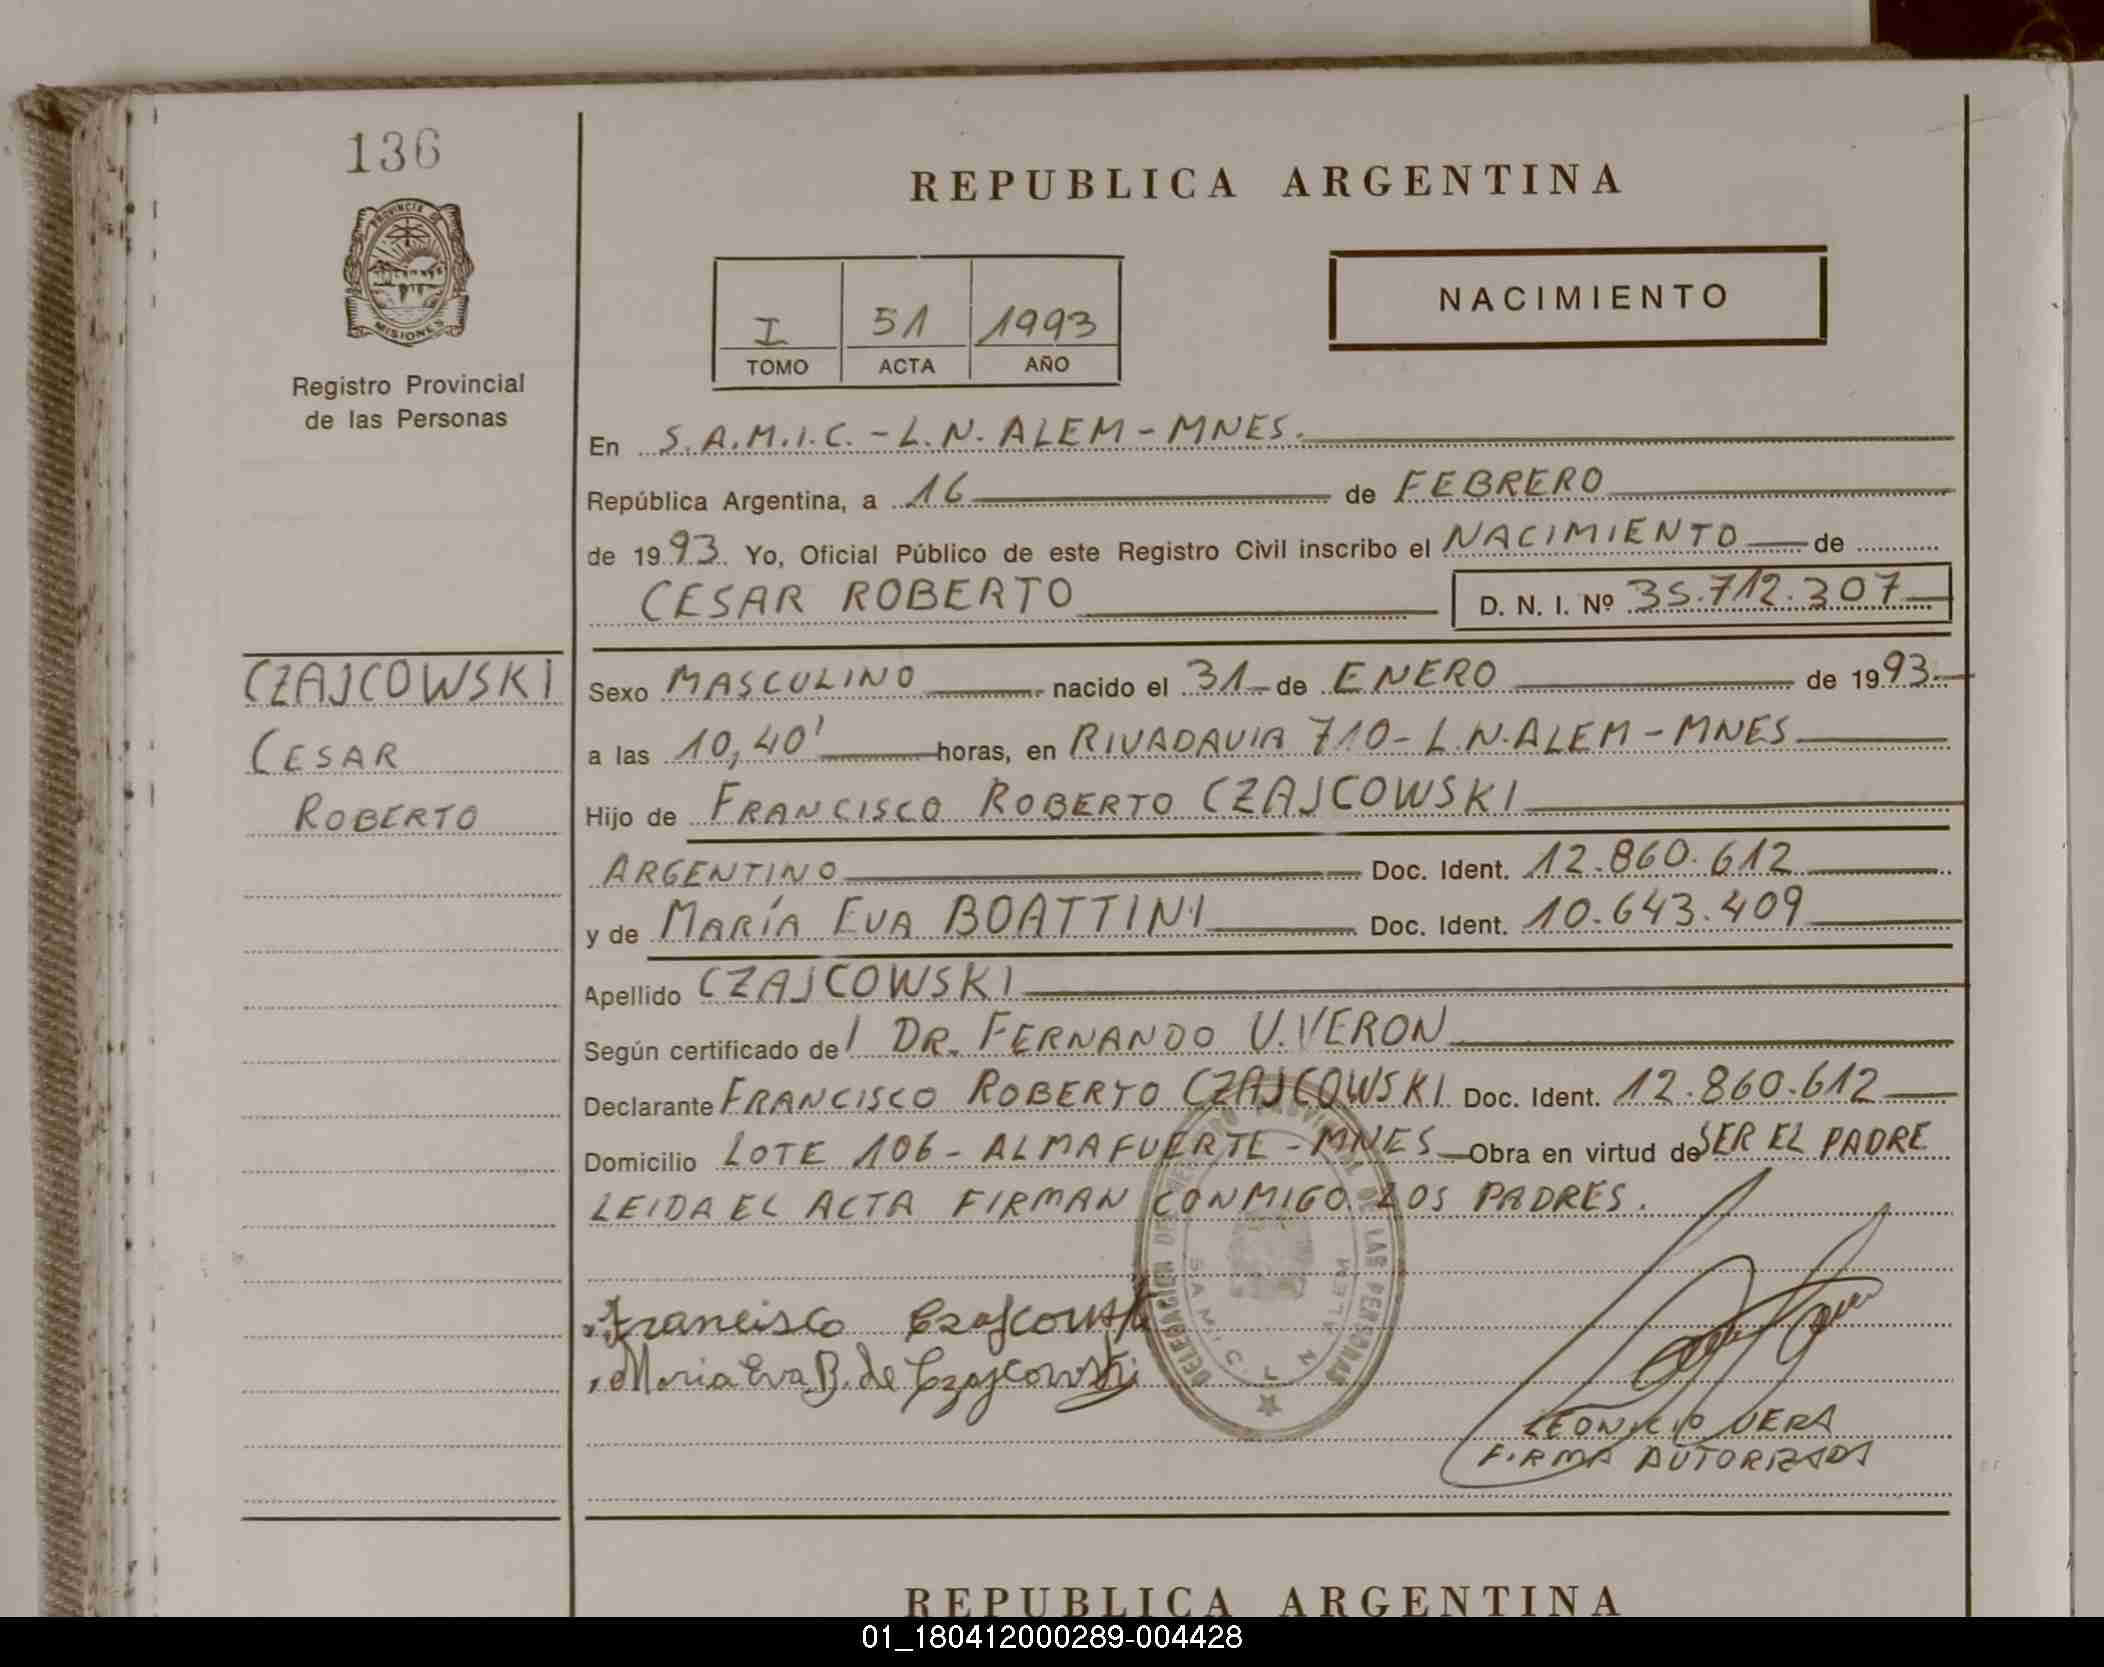 136
PROVINCIA DE
MISIONES
Registro Provincial
de las Personas
REPUBLICA ARGENTINA
I 51 1993
TOMO ACTA AÑO
NACIMIENTO
En S.A.M.I.C.-L.N.ALEM-MNES.
República Argentina, a 16 de FEBRERO
de 1993. Yo, Oficial Público de este Registro Civil inscribo el NACIMIENTO de
CESAR ROBERTO D. N. I. Nº 35.712.307
CZAJCOWSKI
CESAR
ROBERTO
Sexo MASCULINO nacido el 31 de ENERO de 1993.
a las 10,40' horas, en RIVADAVIA 710-L.N.ALEM-MNES
Hijo de FRANCISCO ROBERTO CZAJCOWSKI
ARGENTINO Doc. Ident. 12.860.612
y de MARÍA EVA BOATTINI Doc. Ident. 10.643.409
Apellido CZAJCOWSKI
Según certificado del DR. FERNANDO U. VERON
Declarante FRANCISCO ROBERTO CZAJCOWSKI Doc. Ident. 12.860.612
Domicilio LOTE 106-ALMAFUERTE-MNES Obra en virtud de SER EL PADRE
LEIDA EL ACTA FIRMAN CONMIGO LOS PADRES.
Francisco Czajcowski
Maria Eva B. de Czajcowski
DELEGACION DE LAS PERSONAS
SAMIC L N ALEM
LEONICIO VERA
FIRMA AUTORIZADA
REPUBLICA ARGENTINA
01_180412000289-004428